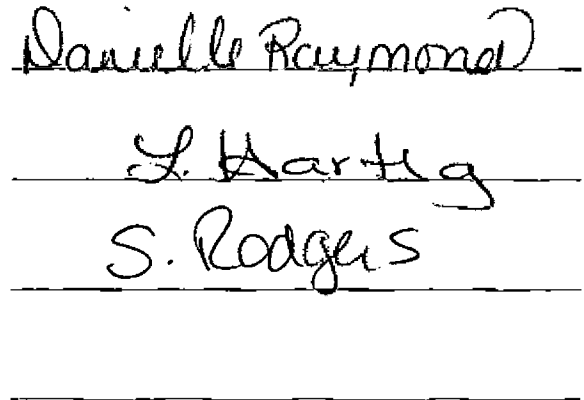 Danielle Raymond
L. Hartig
S. Rodgers